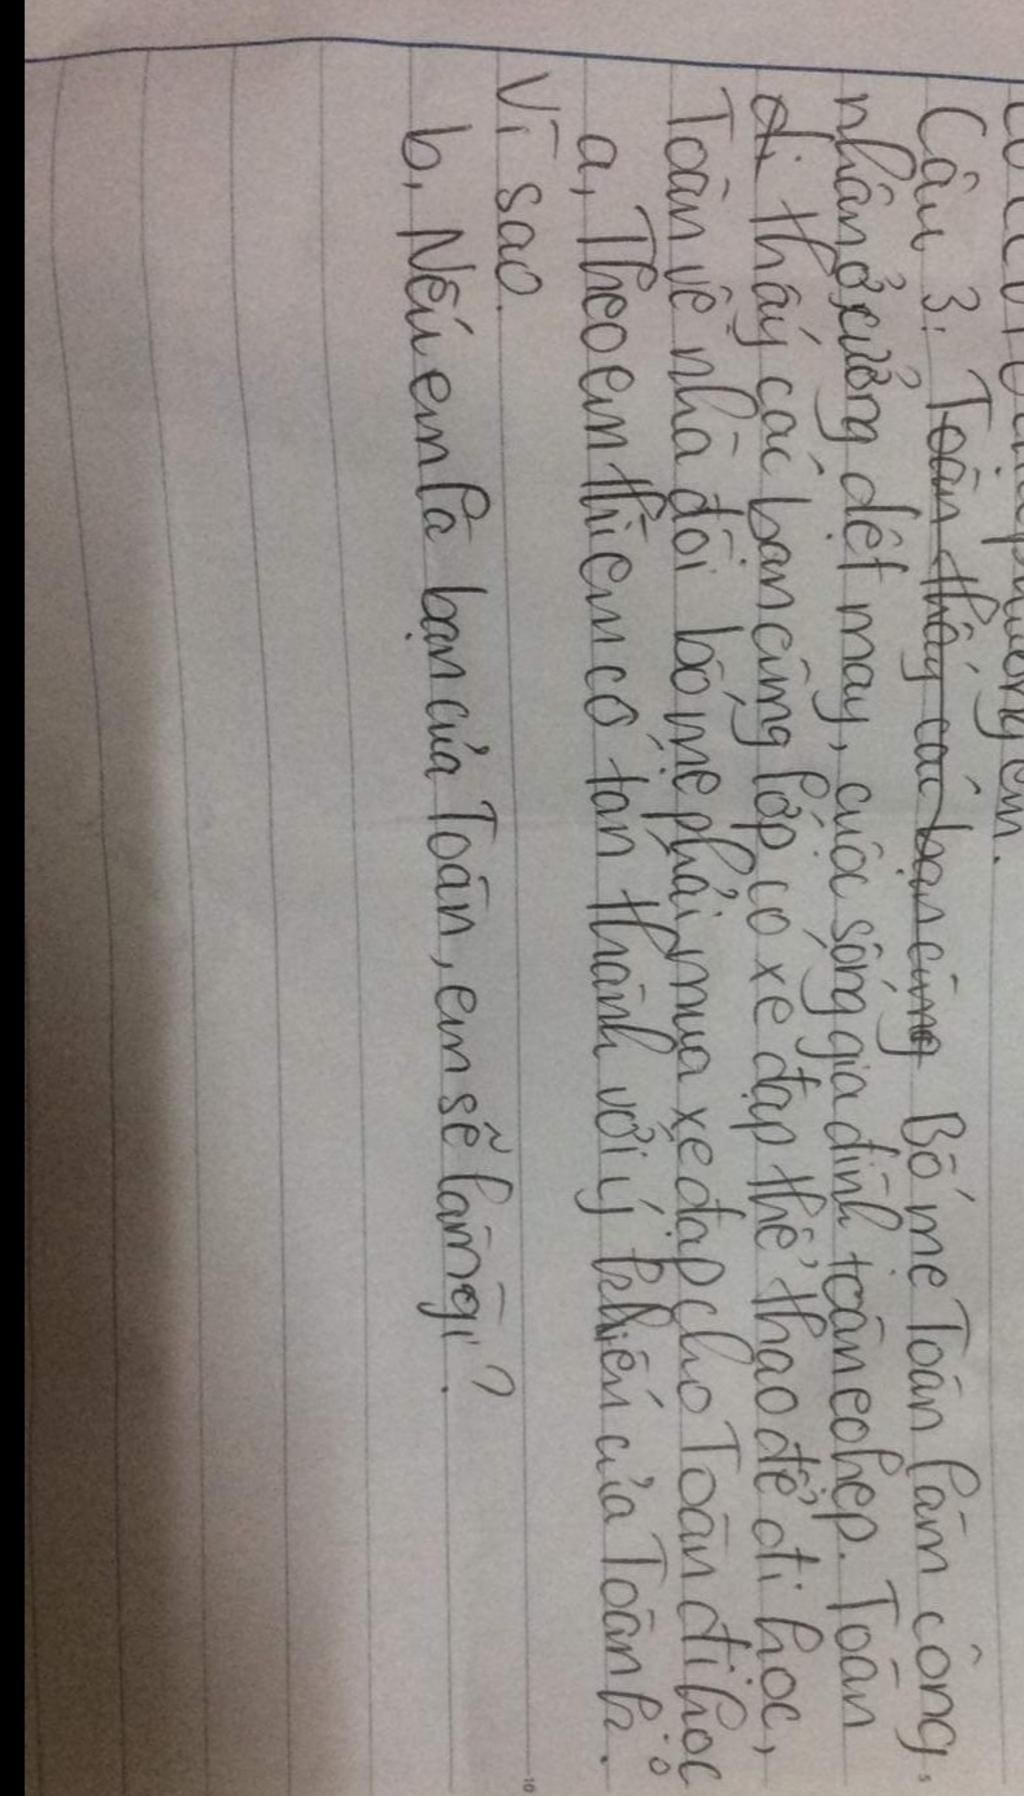 phương em.
Câu 3: Toàn thấy các bạn cùng Bố mẹ Toàn làm công
nhân ở xưởng dệt may, cuộc sống gia đình toàn eo hẹp. Toàn
đi thấy các bạn cùng lớp có xe đạp thể thao để đi học,
Toàn về nhà đòi bố mẹ phải mua xe đạp cho Toàn đi học
a, Theo em thì em có tán thành với ý kiến của Toàn k.
Vì sao.
b, Nếu em là bạn của Toàn, em sẽ làm gì?
5
10